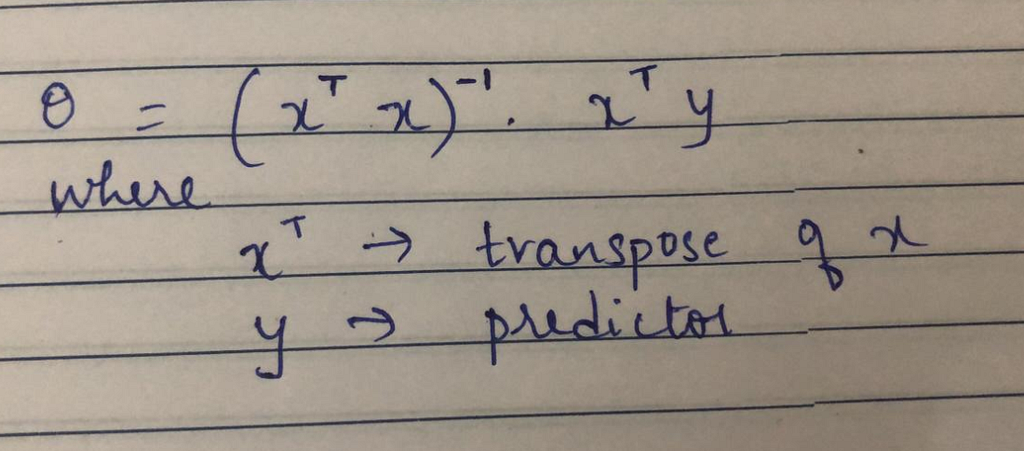 θ = (xᵀ x)⁻¹ . xᵀ y
where
xᵀ → transpose of x
y → predictor